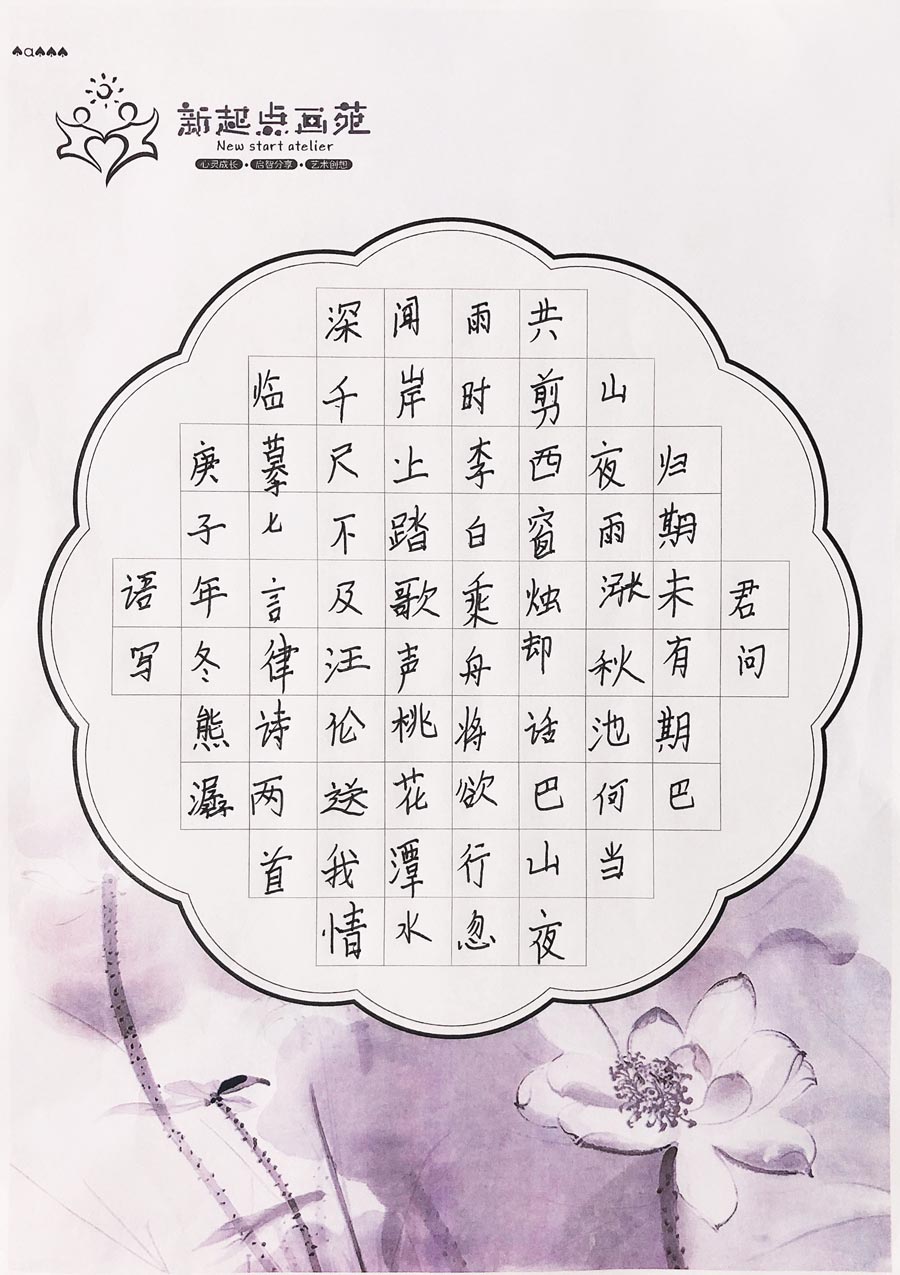 ♠a♠♠♠
新起点画苑
New start atelier
心灵成长·启智分享·艺术创想
君问
归期未有期巴
山夜雨涨秋池何当
共剪西窗烛却话巴山夜
雨时李白乘舟将欲行忽
闻岸上踏歌声桃花潭水
深千尺不及汪伦送我情
临摹七言律诗两首
庚子年冬熊潺
语写